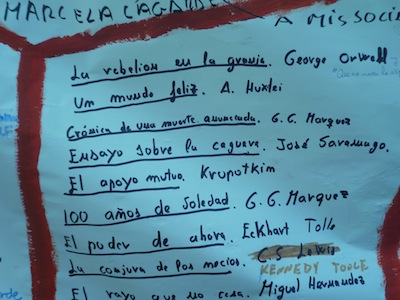 MARCELA LAGARDE
A MIS SOCI
La rebelion en la granja. George Orwell
Un mundo feliz. A. Huxlei
Crónica de una muerte anunciada. G. G. Marquez
Ensayo sobre la ceguera. José Saramago.
El apoyo mutuo. Kropotkim
100 años de soledad. G. G. Marquez
El poder de ahora. Eckhart Tolle
La conjura de los necios. C S Lewis
KENNEDY TOOLE
El rayo que no cesa. Miguel Hernandez